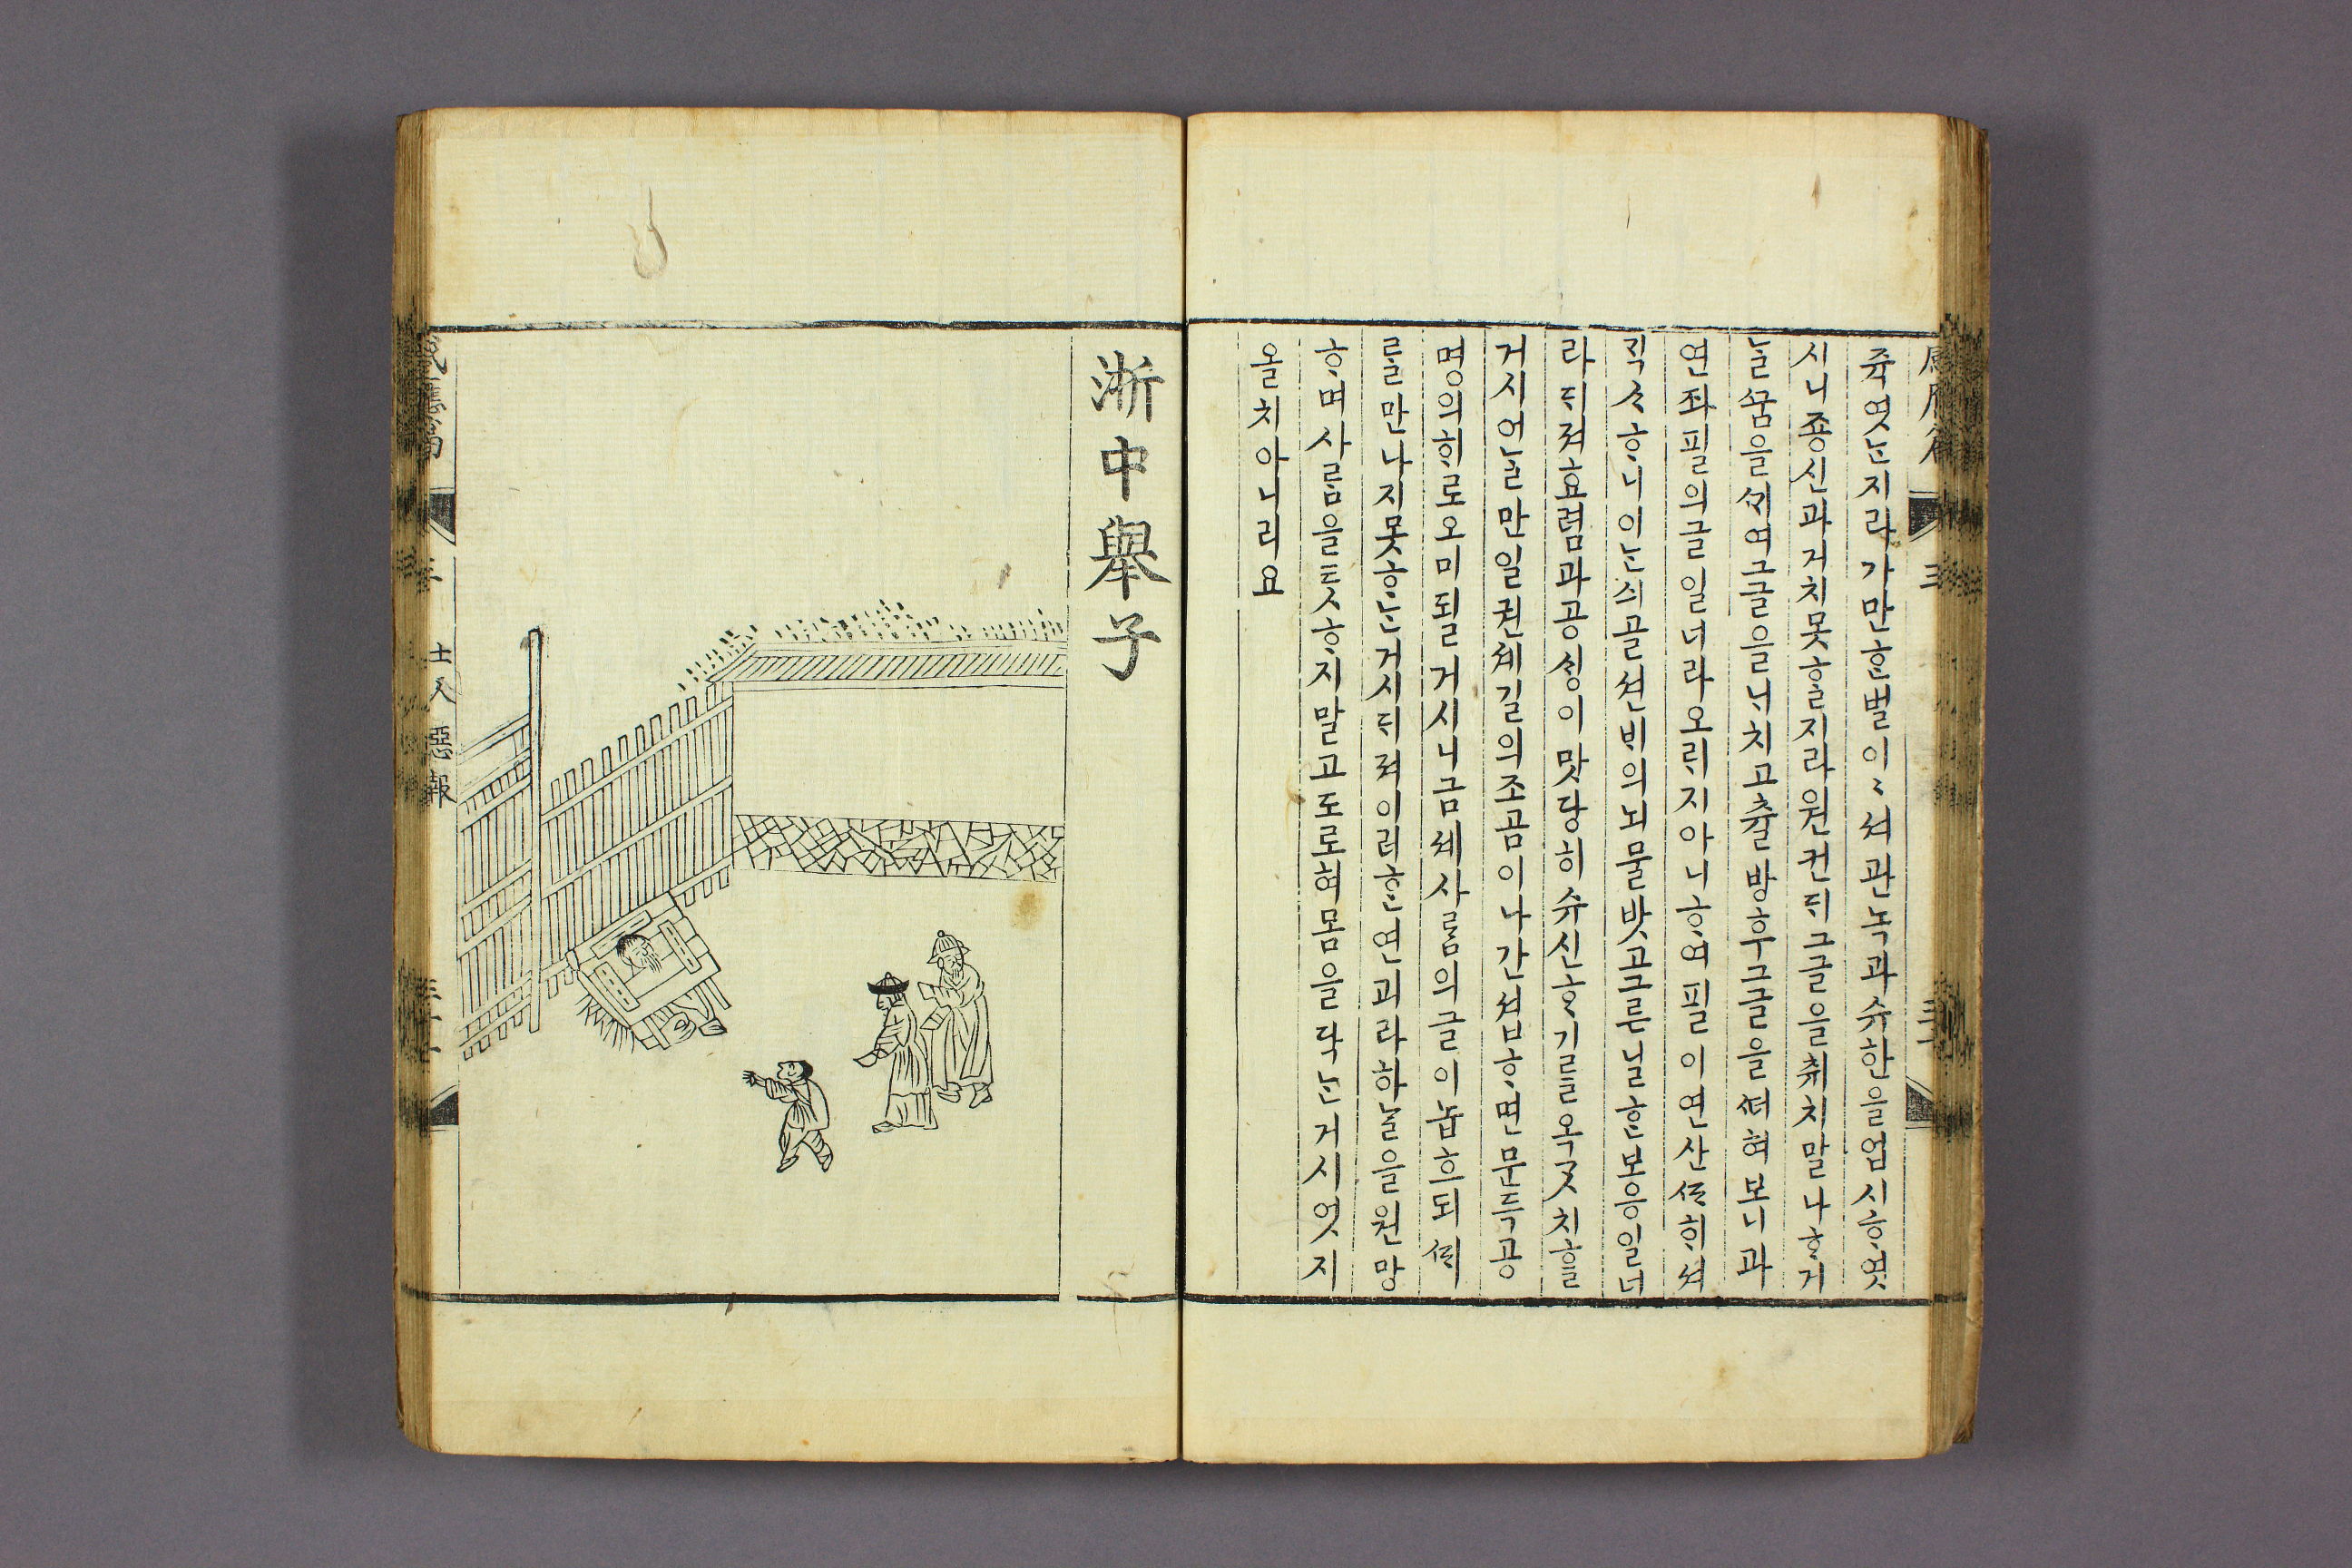 쥭엿ᄂᆞᆫ지라가만ᄒᆞᆫ벌이〻셔관녹과슈한을업시ᄒᆞ엿
시니죵신과거치못ᄒᆞᆯ지라원컨ᄃᆡ그글을취치말나ᄒᆞ거
ᄂᆞᆯᄭᅮᆷ을ᄭᆡ여그글을ᄂᆡ치고츌방후그글을ᄯᅥ혀보니과
연좌필의글일너라오ᄅᆡ지아니ᄒᆞ여필이연산ᄯᅡ희셔
직ᄉᆞᄒᆞ니이ᄂᆞᆫ싀골션ᄇᆡ의뇌물밧고그른닐ᄒᆞᆫ보응일너
라ᄃᆡ져효렴과공ᄉᆡᆼ이맛당히슈신ᄒᆞ기ᄅᆞᆯ옥ᄀᆞᆺ치ᄒᆞᆯ
거시어ᄂᆞᆯ만일권셰길의조곰이나간셥ᄒᆞ면문득공
명의ᄒᆡ로오미될거시니금셰사ᄅᆞᆷ의글이놉흐되ᄯᆡ
ᄅᆞᆯ만나지못ᄒᆞᄂᆞᆫ거시ᄃᆡ져이러ᄒᆞᆫ연괴라하ᄂᆞᆯ을원망
ᄒᆞ며사ᄅᆞᆷ을ᄐᆞᆺᄒᆞ지말고도로혀몸을닥ᄂᆞᆫ거시엇지
올치아니리요
淅中舉子
士人 惡報